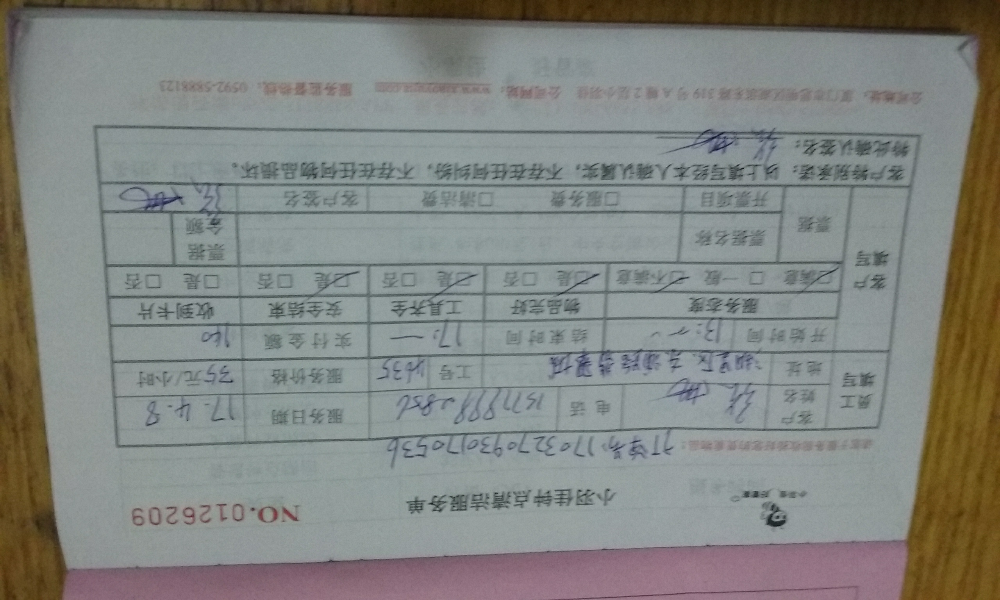 小羽佳钟点清洁服务单
NO.0126209
请客户服务前收拾好您的贵重物品:
订单号:170327093017053б
员工填写
客户姓名 张 电话 服务日期 17.4.8
地址 湖里区 工号 4635 服务价格 35元/小时
开始时间 13: 结束时间 17:— 实付金额 140
客户填写
服务态度 物品完好 工具齐全 安全结束 收到卡片
☑满意 □一般 □不满意 ☑是 □否 ☑是 □否 ☑是 □否 □是 □否
票据 票据名称 票据金额
开票项目 □服务费 □清洁费 客户签名 张
客户特别承诺:以上填写经本人确认属实,不存在任何纠纷,不存在任何物品损坏。
特此确认签名: 张
公司地址:厦门市思明区湖滨东路319号A幢2层小羽佳 公司网站: 服务监督热线:0592-5888123